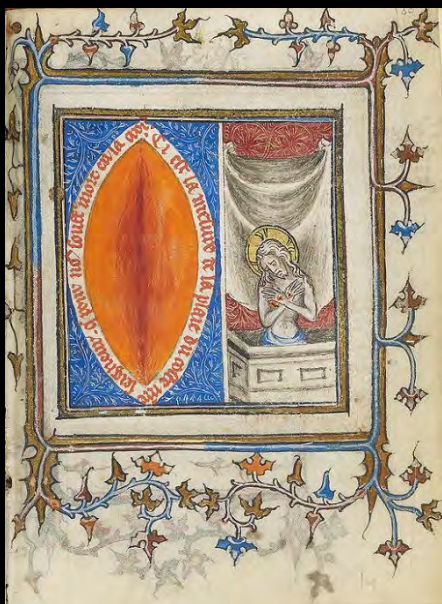 C est la mesure de la plaie du coste nre
seigneur q pour no souffri mort en la